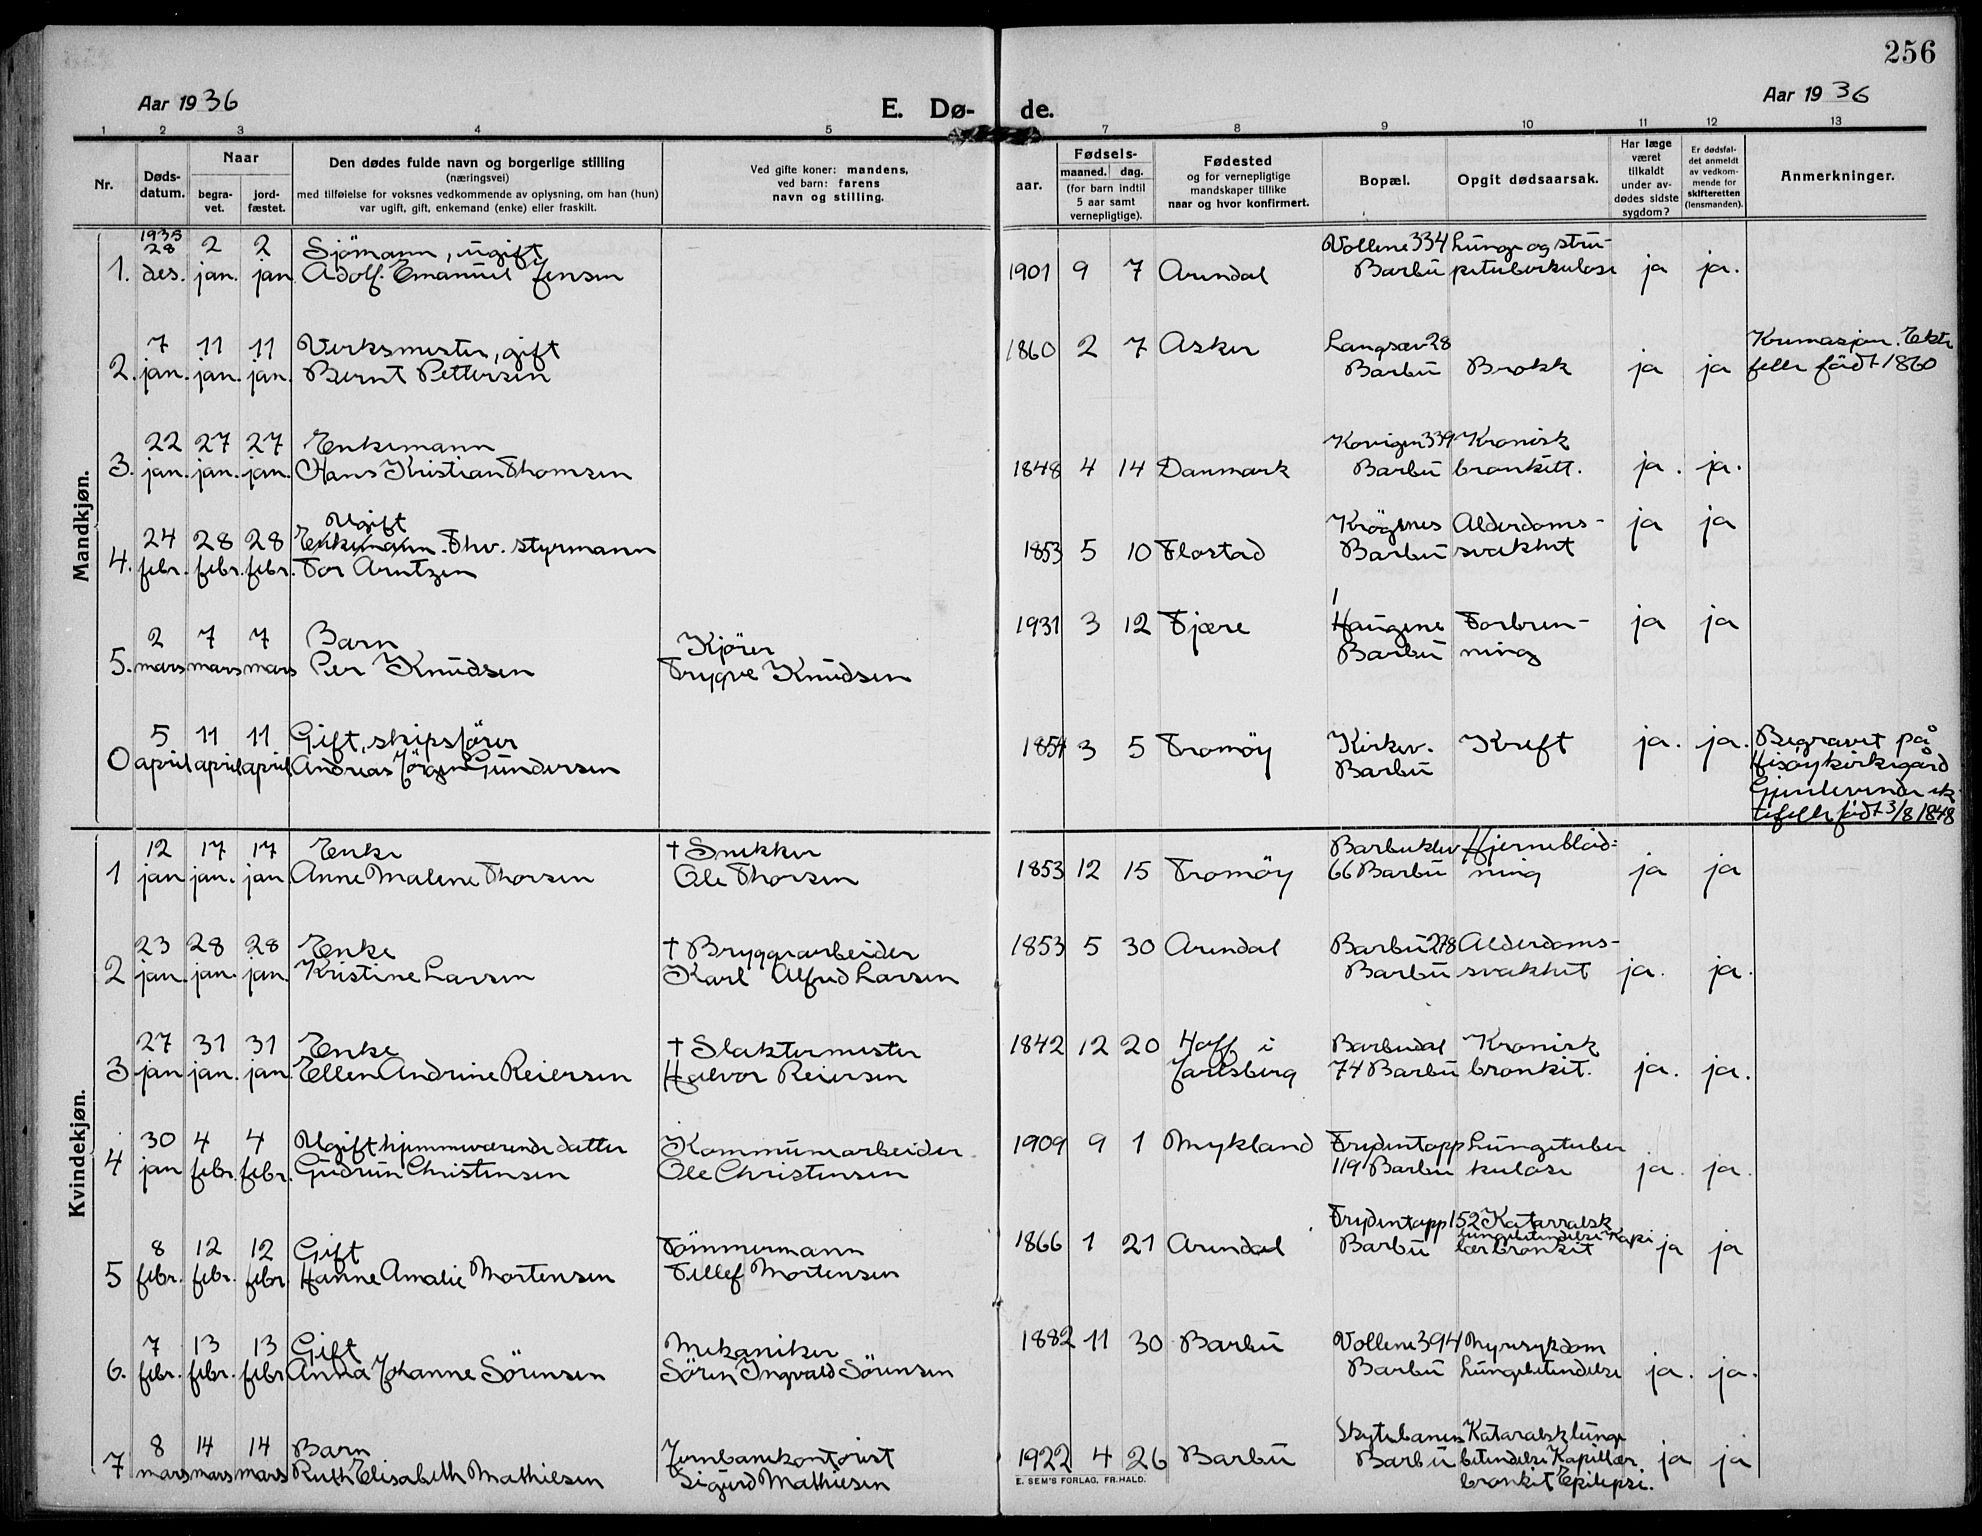 256
Aar 1936
E. Dø- de.
Aar 1936
1 2 3 4 5 7 8 9 10 11 12 13
Nr.
Døds-
datum.
Naar
begra-
vet.
jord-
fæstet.
Den dødes fulde navn og borgerlige stilling
(næringsvei)
med tilføielse for voksnes vedkommende av oplysning, om han (hun)
var ugift, gift, enkemand (enke) eller fraskilt.
Ved gifte koner: mandens,
ved barn: farens
navn og stilling.
aar.
Fødsels-
maaned. dag.
(for barn indtil
5 aar samt
vernepligtige).
Fødested
og for vernepligtige
mandskaper tillike
naar og hvor konfirmert.
Bopæl.
Opgit dødsaarsak.
Har læge
været
tilkaldt
under av-
dødes sidste
sygdom?
Er dødsfal-
det anmeldt
av vedkom-
mende for
skifteretten
(lensmanden).
Anmerkninger.
Mandkjøn.
1935
28 2 2 Sjömann, ugift Vollene 334 Lunge og stru-
1. des. jan. jan Adolf Emanuel Jensen 1901 9 7 Arendal Barbu petuberkulose ja ja.
7 11 11 Verksmester, gift 1860 2 7 Asker Langsæv 28 Kremasjon. Ekte
2. jan. jan. jan. Bernt Pettersen Barbu Brokk ja ja felle född 1860
22 27 27 Enkemann 339 Kronisk
3. jan. jan. jan. Hans Kristian Thomsen 1848 4 14 Danmark Barbu bronkitt. ja. ja.
Ugift Krögenes Alderdoms- ja ja
24 28 28 Enkemann. Fhv. styrmann 1853 5 10 Flostad Barbu svakhet
4. febr. febr. febr. Tor Arntzen
2 7 7 Barn Kjörer 1931 3 12 Fjære Haugene Forbren- ja ja
5. mars mars mars Per Knudsen Trygve Knudsen Barbu ning
5 11 11 Gift, skipsförer 1854 3 5 Tromöy Kirkev. Kreft ja. ja. Begravet på
0 april april april Andreas Jörgen Gundersen Barbu Hisöy kirkegård
Gjenlevende ek-
tefelle född 3/8 1848
Kvindekjøn.
12 17 17 Enke † Snekker Barbuklev Hjerneblöd-
1 jan jan. jan. Anne Malene Thorsen Ole Thorsen 1853 12 15 Tromöy 66 Barbu ning ja ja
23 28 28 Enke † Bryggearbeider 1853 5 30 Arendal Barbu 278 Alderdoms-
2 jan. jan. jan. Kristine Larsen Karl Alfred Larsen Barbu svakhet ja. ja.
27 31 31 Enke † Slaktermester 1842 12 20 Hoff i Barbudal Kronisk
3 jan jan. jan. Ellen Andrine Reiersen Halvor Reiersen Jarlsberg 74 Barbu bronkit. ja. ja.
30 4 4 Ugift hjemmeværende datter Kommunearbeider 1909 9 1 Mykland Frydentopp Lungetuber
4 jan febr. febr. Gudrun Christensen Ole Christensen 119 Barbu kulose ja. ja.
Frydentopp 152 Katarralsk
8 12 12 Gift Tömmermann 1866 1 21 Arendal Barbu lungebetendelse Kapi
5 febr. febr. febr. Hanne Amalie Mortensen Tellef Mortensen lær bronkit ja ja
7 13 13 Gift Mekaniker 1882 11 30 Barbu Vollene 394 Nyresykdom
6. febr. febr. febr Anna Johanne Sörensen Sören Ingvald Sörensen Barbu Lungebetendelse ja. ja.
8 14 14 Barn Jernbanekontorist Skytebanen Kataralsk lunge
7 mars mars mars Ruth Elisabeth Mathiesen Sigurd Mathiesen 1922 4 26 Barbu Barbu betendelse Kapillær ja ja
bronkit Epilepsi.
E. SEM'S FORLAG, FR.HALD.